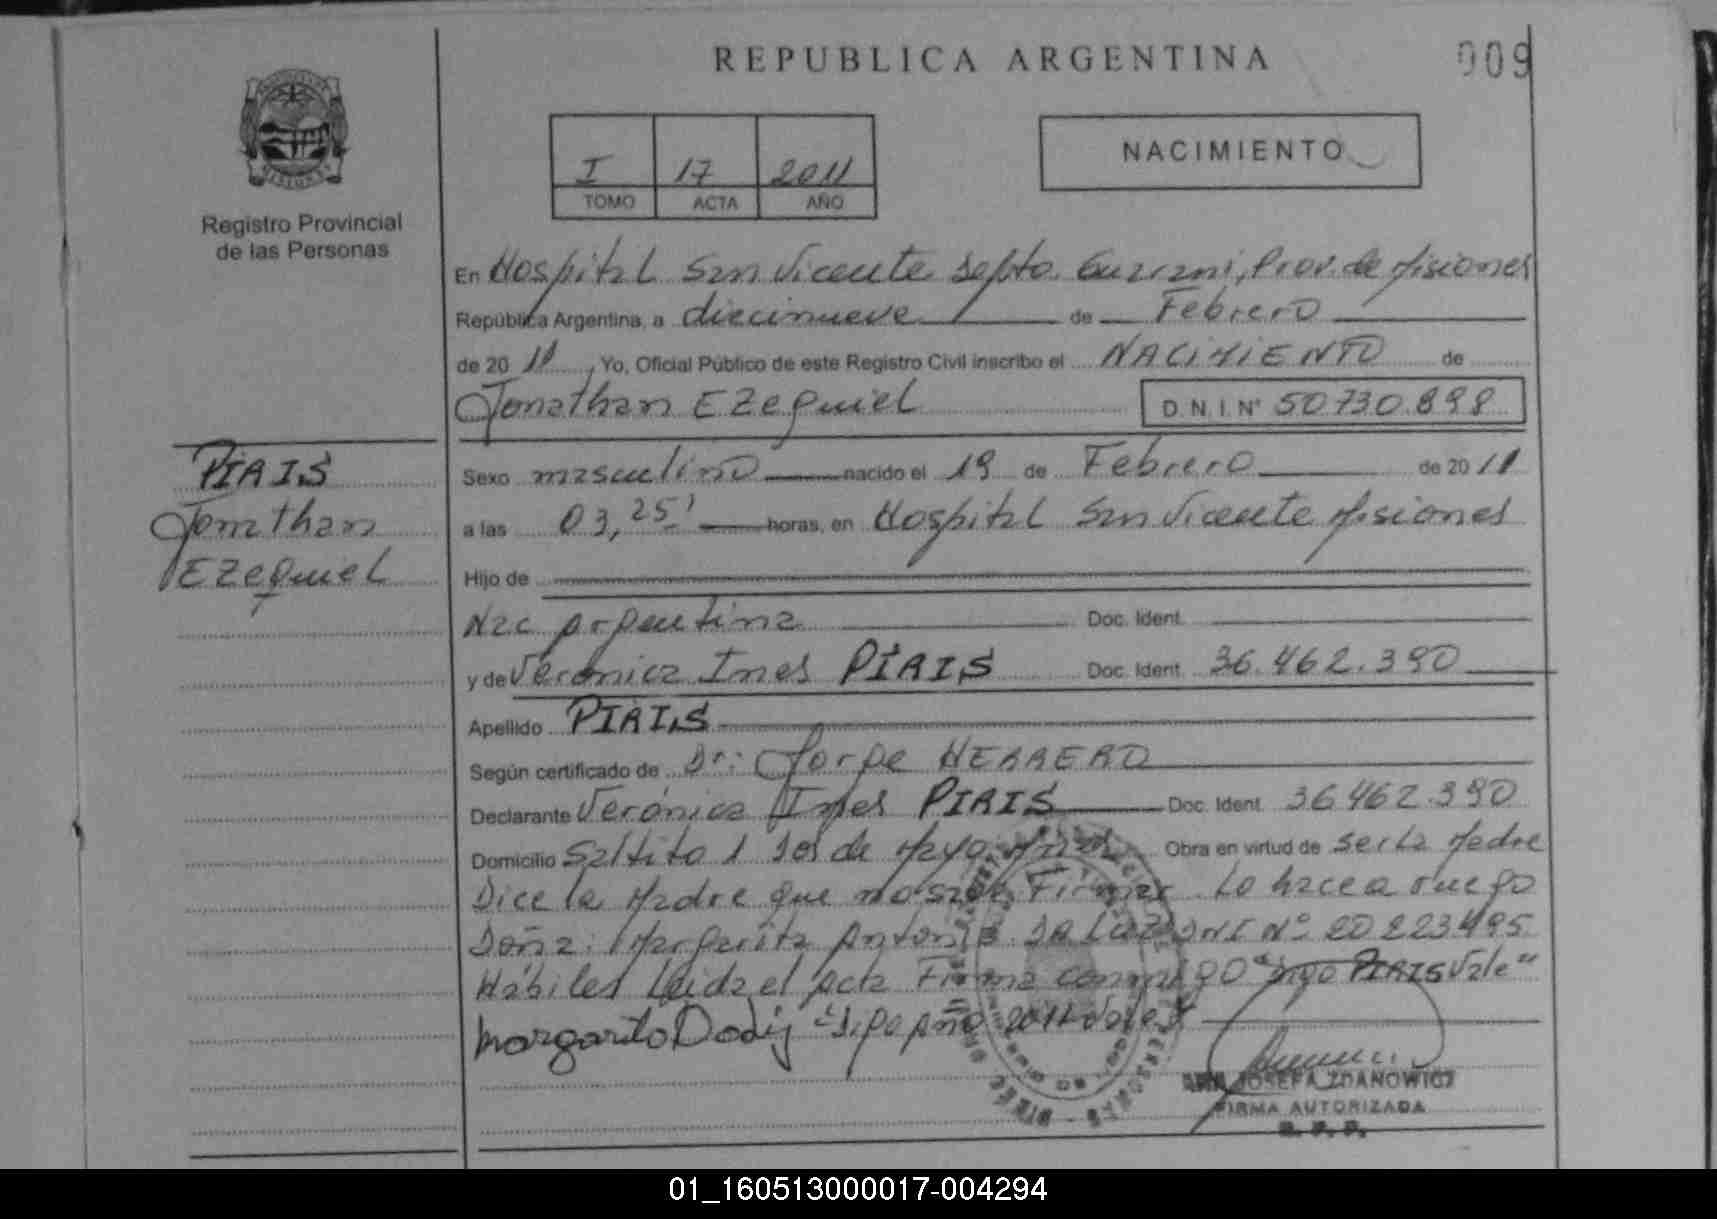 REPUBLICA ARGENTINA
009
I 17 2011
TOMO ACTA AÑO
NACIMIENTO
Registro Provincial
de las Personas
En Hospital San Vicente Depto. Guarani, Prov. de Misiones
República Argentina, a diecinueve de Febrero
de 2011, Yo, Oficial Público de este Registro Civil inscribo el NACIMIENTO de
Jonathan EZequiel D.N.I. Nº 50730.898
PIRIS
Jonathan
EZequiel
Sexo masculino nacido el 19 de Febrero de 2011
a las 03,25' horas, en Hospital San Vicente Misiones
Hijo de
Nac Argentina Doc. Ident.
y de Verónica Ines PIRIS Doc. Ident. 36.462.390
Apellido PIRIS
Según certificado de Dr: Jorge HERRERO
Declarante Verónica Ines PIRIS Doc. Ident. 36462.390
Domicilio Saltito 1 Dos de Mayo Obra en virtud de ser la Madre
Dice la Madre que no sabe Firmar Lo hace a ruego
Doña: Margarita Antonia DNI Nº 20223495
Hábiles Leida el Acta Firma conmigo "Digo PIRIS Vale"
"Digo Año 2011 Vale"
ANA JOSEFA ZDANOWICZ
FIRMA AUTORIZADA
R. P. P.
01_160513000017-004294